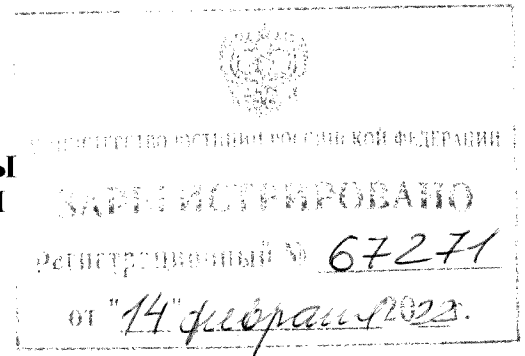 МИНИСТЕРСТВО ЮСТИЦИИ РОССИЙСКОЙ ФЕДЕРАЦИИ
Ы
ЗАРЕГИСТРИРОВАНО
Регистрационный № 67271
от "14" февраля 2022.